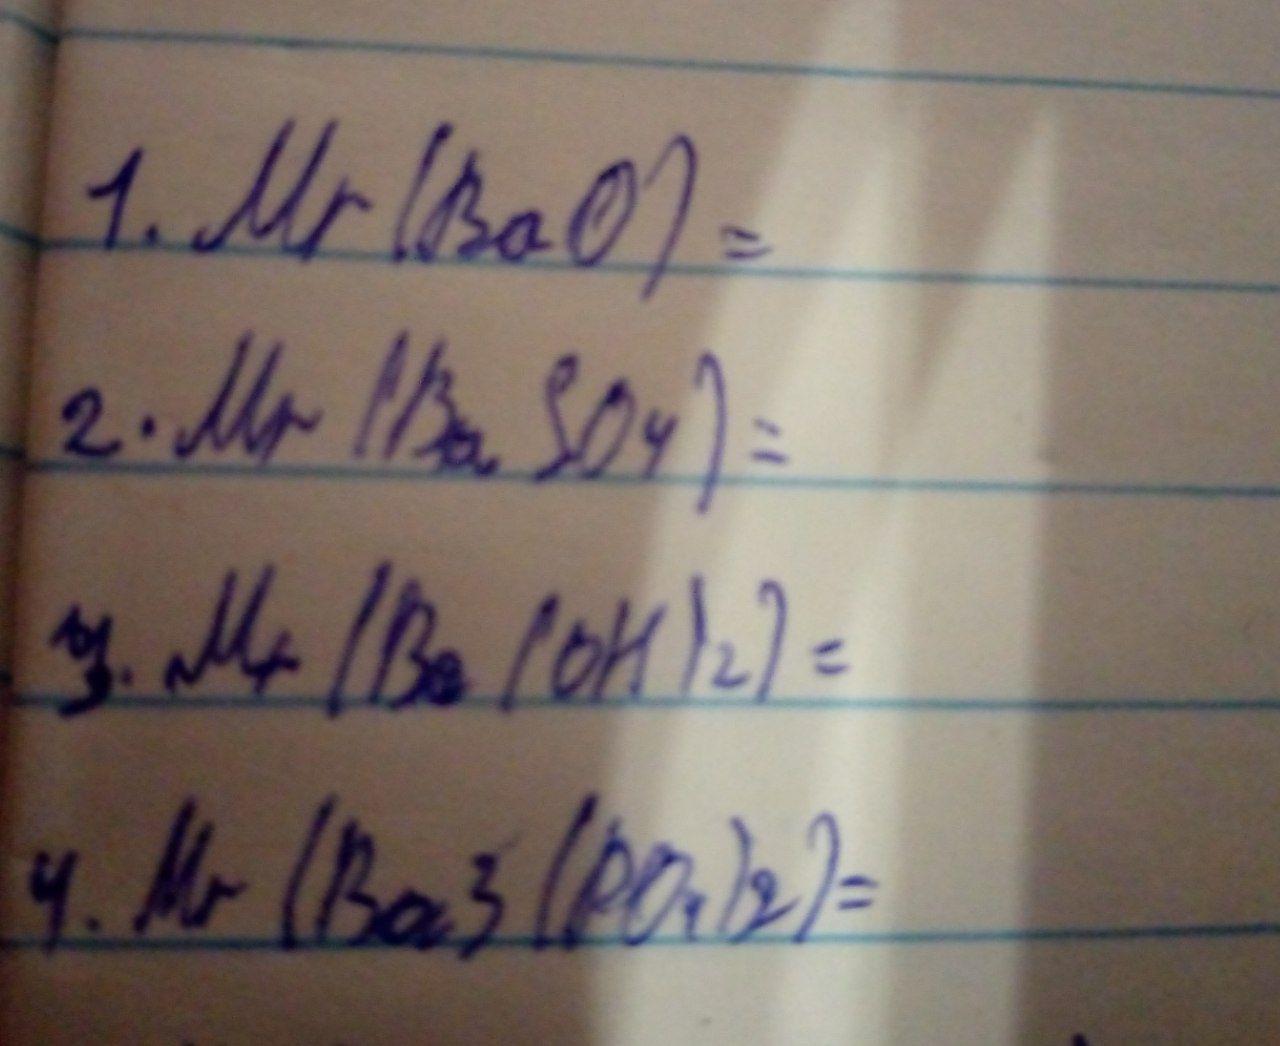 1. Mr (BaO) =
2. Mr (Ba SO4) =
3. Mr (Ba (OH)2) =
4. Mr (Ba3 (PO4)2) =